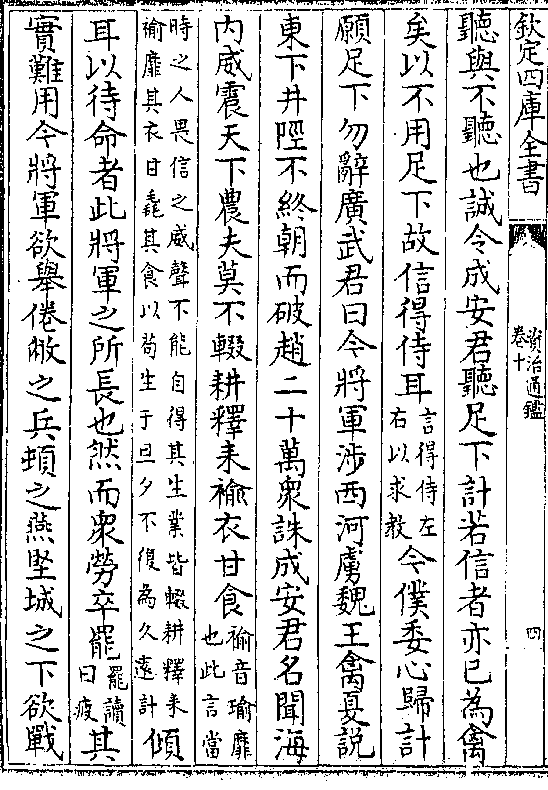 欽定四庫全書
資治通鑑
卷十
四
聽與不聽也誠令成安君聽足下計若信者亦已為禽
矣以不用足下故信得侍耳言得侍左右以求教今僕委心歸計
願足下勿辭廣武君曰今將軍涉西河虜魏王禽夏説
東下井陘不終朝而破趙二十萬衆誅成安君名聞海
内威震天下農夫莫不輟耕釋耒褕衣甘食褕音瑜靡也此言當
時之人畏信之威聲不能自得其生業皆輟耕釋耒褕靡其衣甘毳其食以苟生于旦夕不復為久遠計傾
耳以待命者此將軍之所長也然而衆勞卒罷罷讀曰疲其
實難用今將軍欲舉倦敝之兵頓之燕堅城之下欲戰